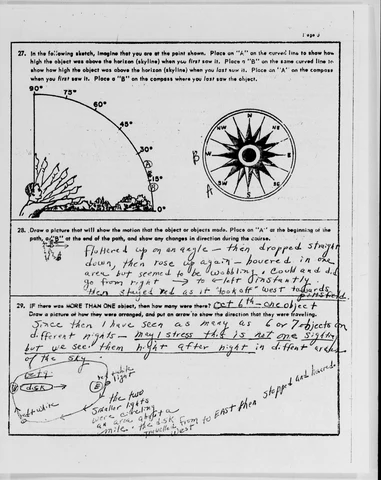 Page 3
27. In the following sketch, imagine that you are at the point shown. Place an "A" on the curved line to show how
high the object was above the horizon (skyline) when you first saw it. Place a "B" on the same curved line to
show how high the object was above the horizon (skyline) when you last saw it. Place an "A" on the compass
when you first saw it. Place a "B" on the compass where you last saw the object.
90° 75° 60° 45° 30° 15° 0°
A
B
N NE E SE S SW W NW
B
A
28. Draw a picture that will show the motion that the object or objects made. Place an "A" at the beginning of the
path, a "B" at the end of the path, and show any changes in direction during the course.
Fluttered up on an angle - then dropped straight
down, then rose up again - hovered in one
area but seemed to be wobbling. Could and did
go from right → to left instantly.
then shaded red as it took off west towards
29. IF there was MORE THAN ONE object, then how many were there? Oct 6th - one object
Draw a picture of how they were arranged, and put an arrow to show the direction that they were traveling.
Since then I have seen as many as 6 or 7 objects on
different nights - may I stress this is not one sighting
but we see them night after night in diffent areas
of the sky.
disk
white light
the two
smaller lights
were circling
an area about a
mile. the disk
travelled from
west
to East then stopped and hovered.